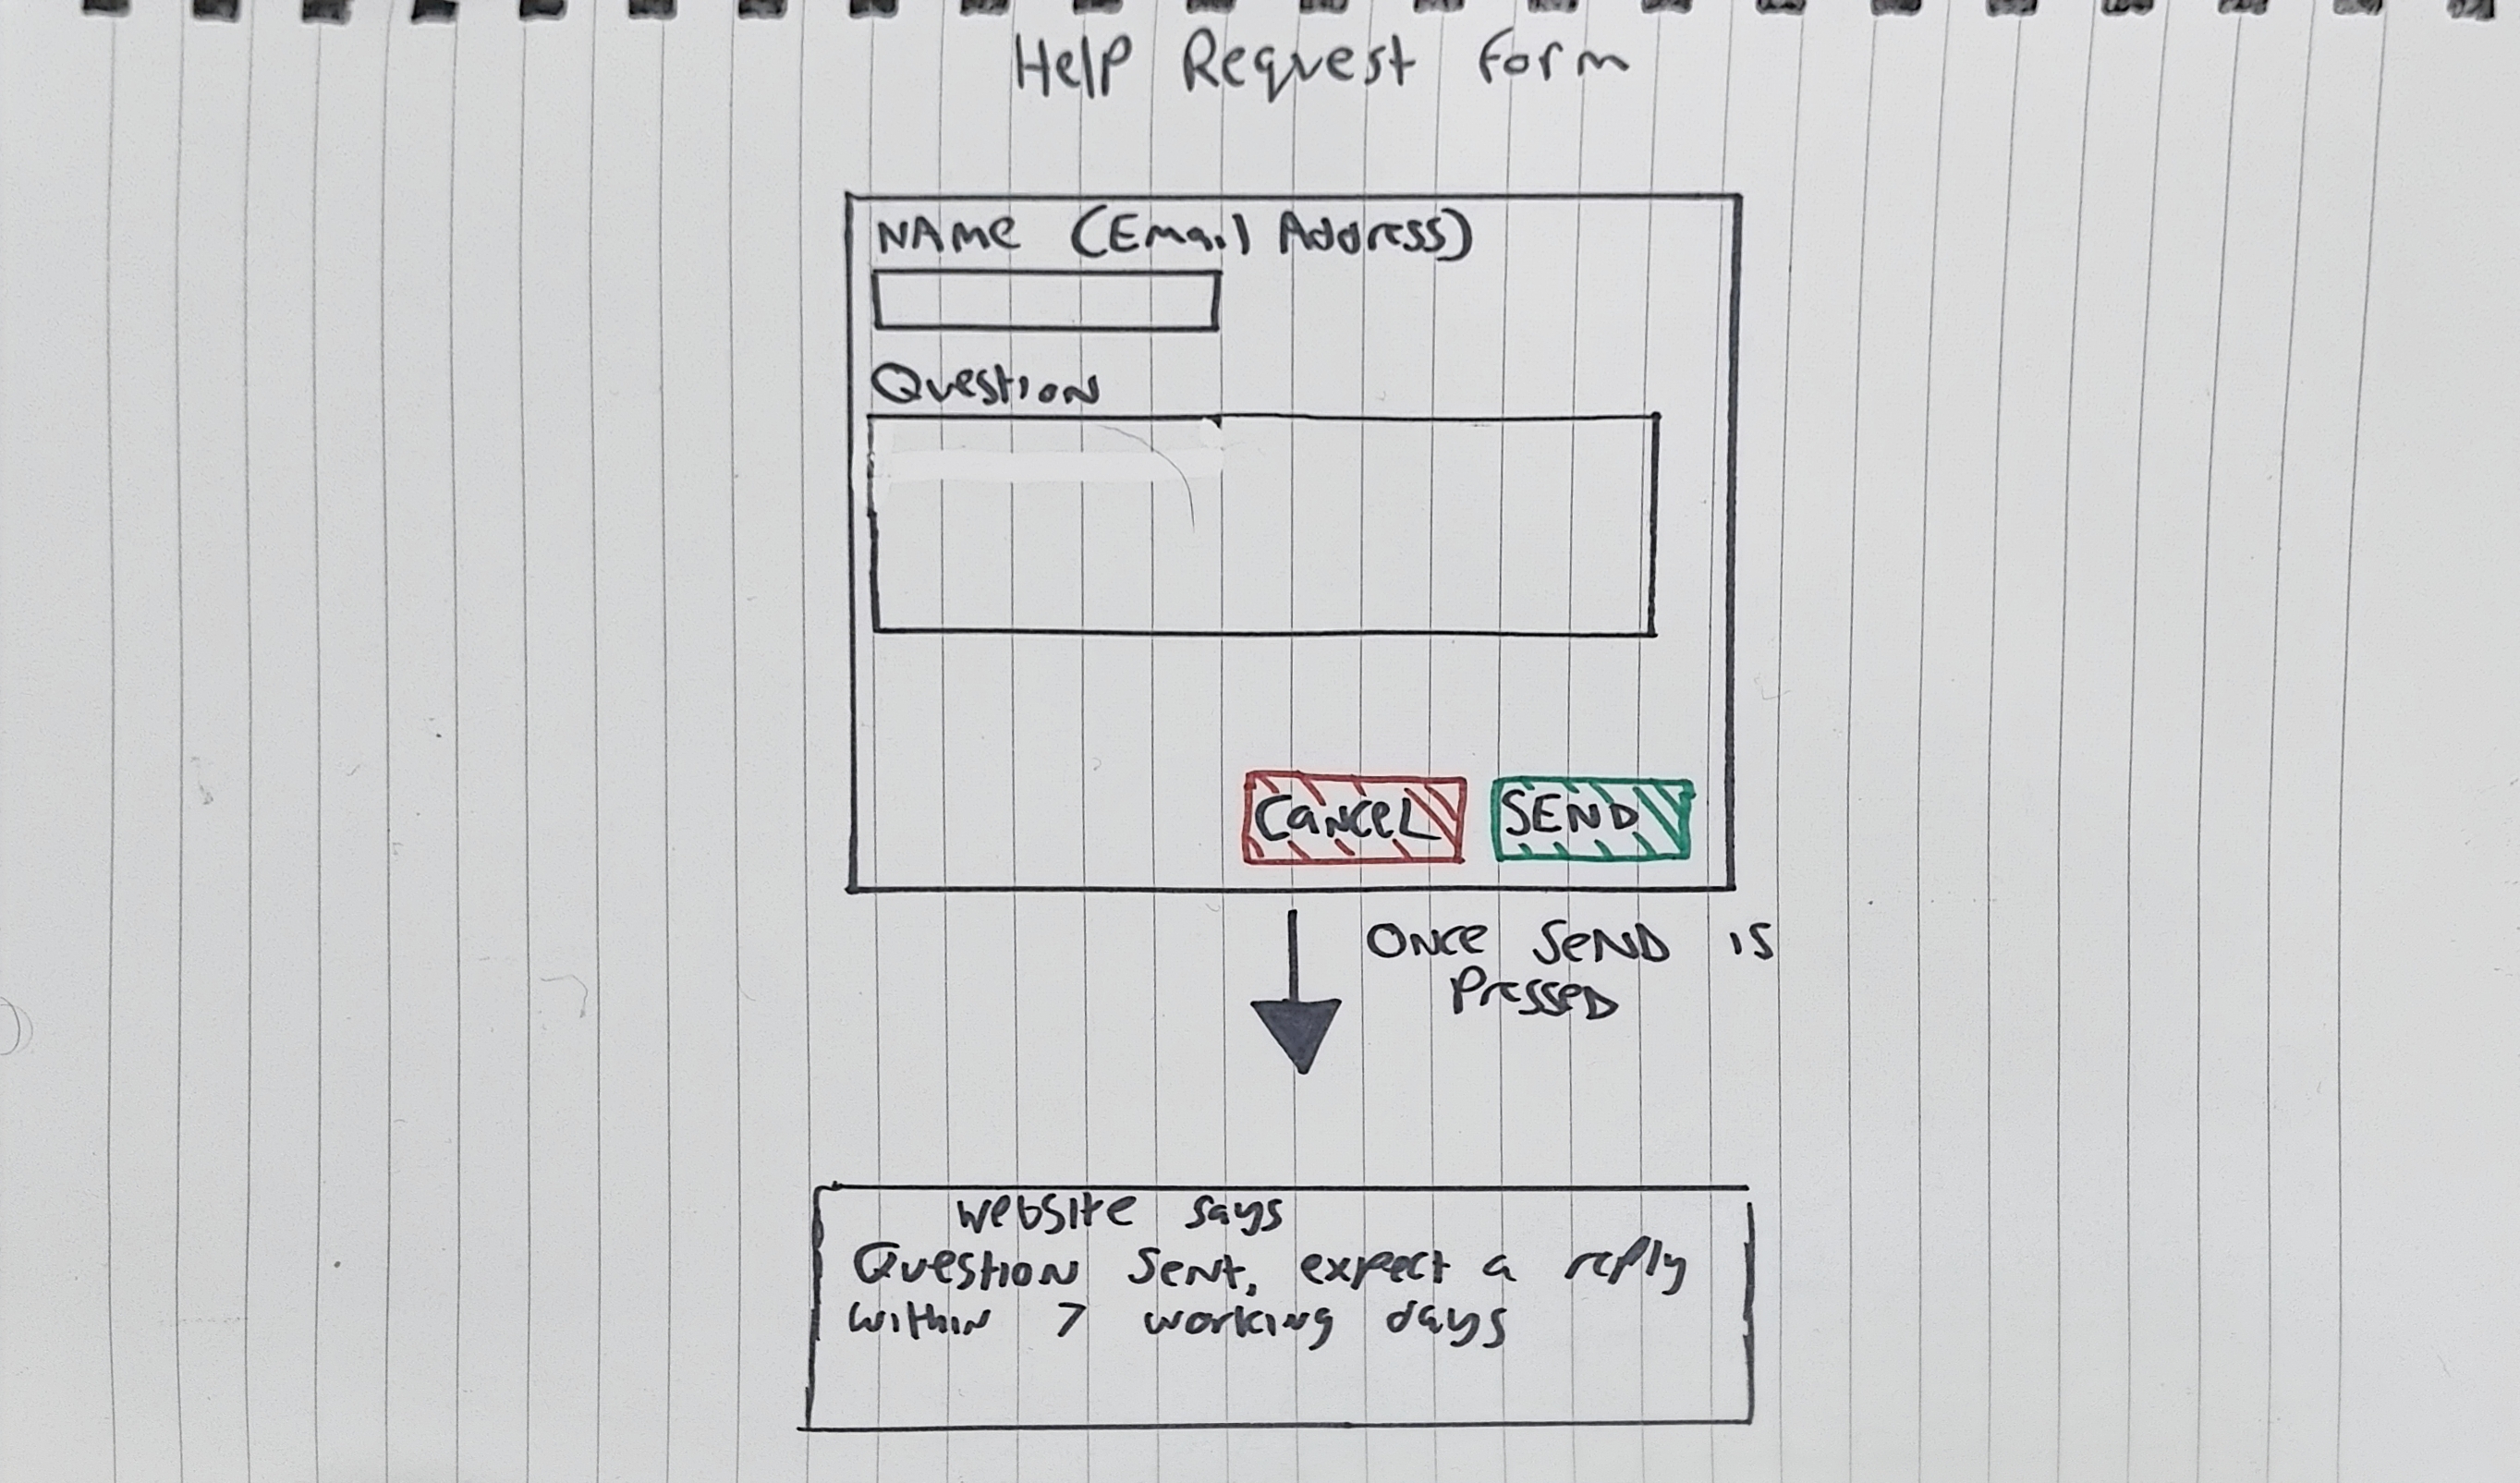 Help Request Form
NAME (Email Address)
Question
Cancel
SEND
Once SEND is
Pressed
website says
Question Sent, expect a reply
within 7 working days